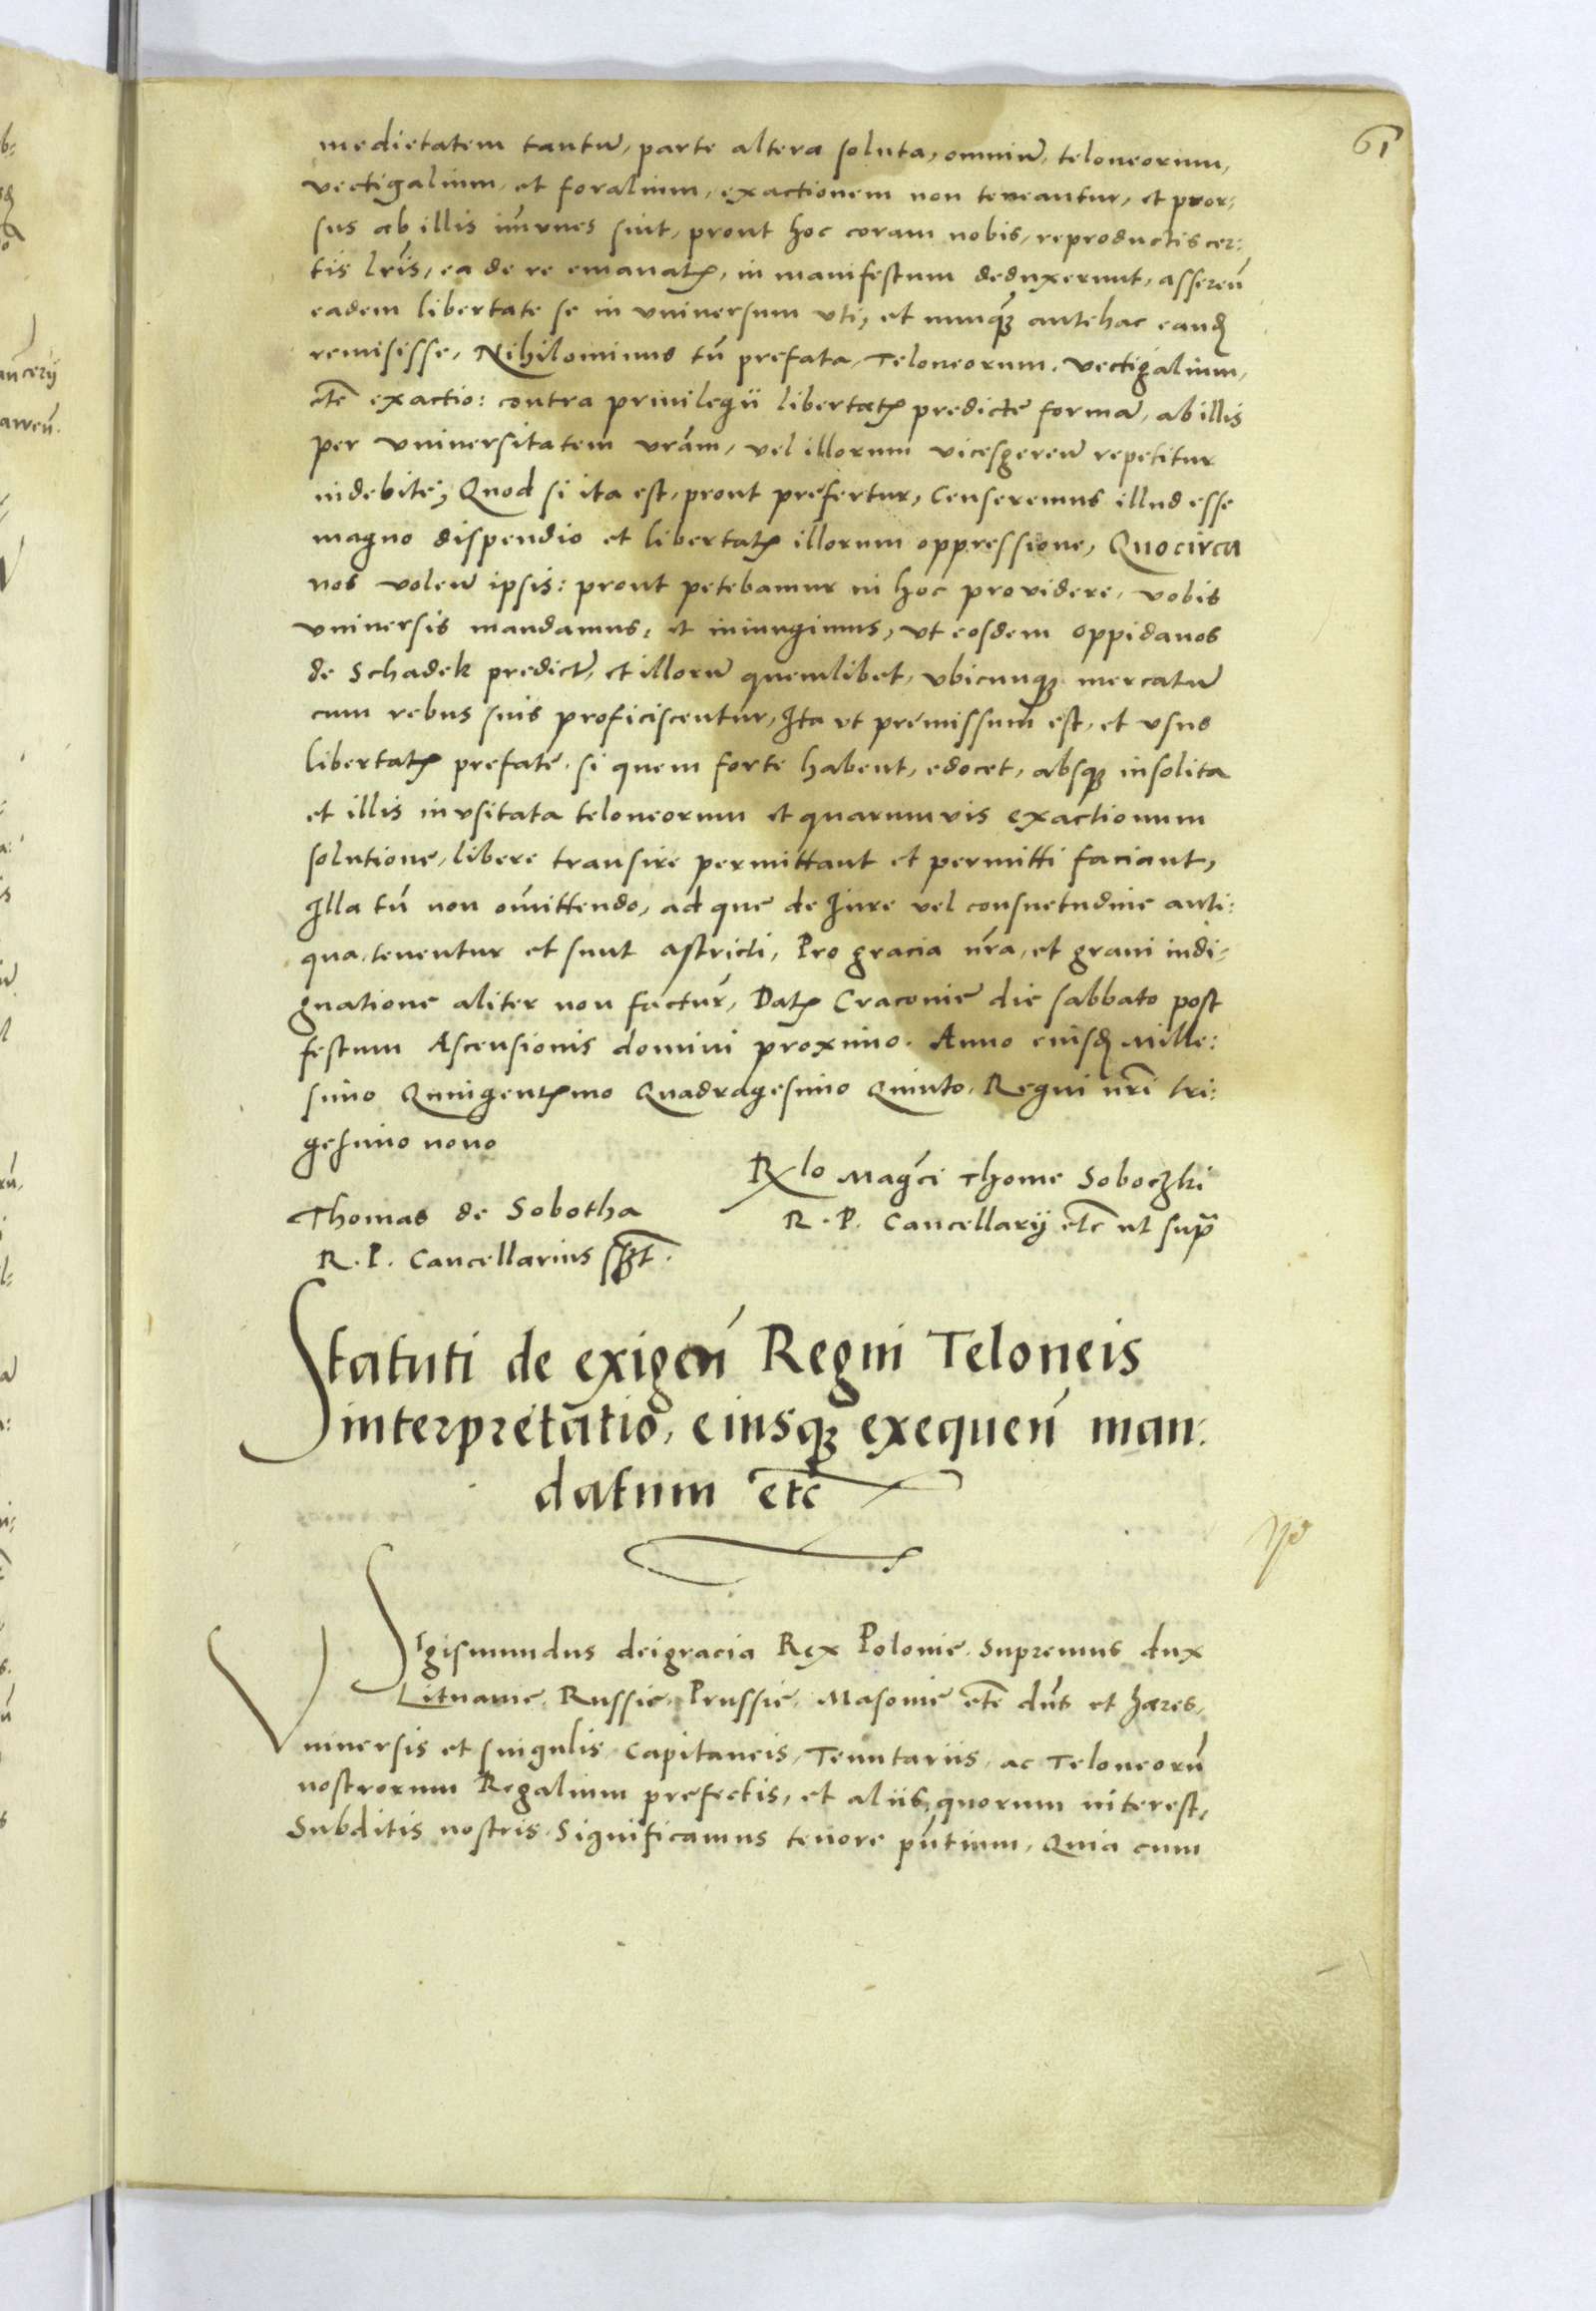 61
medietatem tantū, parte altera soluta, omniū, teloneorum,
vectigalium, et foralium, exactionem non teneantur, et pror:
sus ab illis im̄unes sint, prout hoc coram nobis, reproductis cer:
tis lr̄is, ea de re emanatꝭ, in manifestum deduxerunt, asseren̄
eadem libertate se in vniuersum vti, et nunqꝫ antehac eandꝫ
remisisse, Nihilominus tn̄ prefata, Teloneorum, vectigalium,
etc̄ exactio: contra priuilegii libertatꝭ predicte formā, ab illis
per vniuersitatem vrām, vel illorum vicesgeren̄ repetitur
indebite; Quod si ita est, prout prefertur, Censeremus illud esse
magno dispendio et libertatꝭ illorum oppressione, Quocirca
nos volen̄ ipsis: prout petebamur in hoc prouidere, vobis
vniuersis mandamus, et iniungimus, vt eosdem oppidanos
de Schadek predict̄, et illorū quemlibet, vbicunqꝫ mercatū
cum rebus suis proficiscentur, Ita vt premissum est, et vsus
libertatꝭ prefate, si quem forte habent, edocet, absqꝫ insolita
et illis invsitata teloneorum et quarumuis exactionum
solutione, libere transire permittant et permitti faciant,
Illa tn̄ non om̄ittendo, ad que de Iure vel consuetudine anti:
qua, tenentur et sunt astricti, Pro gracia nr̄a, et graui indi:
gnatione aliter non factur̄, Datꝭ Craconie die sabbato post
festum Ascensionis domini proximo. Anno eiusdꝫ Mille:
simo Quingentꝭmo Quadragesimo Quinto. Regni nr̄i tri:
gesimo nono
Rlo Maḡci Thome Soboczki
R. P. Cancellarij etc̄ ut supᵃ
Thomas de Sobotha
R. P. Cancellarius sszt.
Statuti de exigen̄ Regni Teloneis
interpretatio, eiusqꝫ exequen̄ man:
datum etc̄
Sigismundus dei gracia Rex Polonie, Supremus dux
Lituanie, Russie, Prussie, Masouie etc̄ dn̄s et hæres,
Vniuersis et singulis, Capitaneis, Tenutariis, ac Teloneorū
nostrorum Regalium prefectis, et aliis, quorum interest,
Subditis nostris Significamus tenore pn̄tium, Quia cum